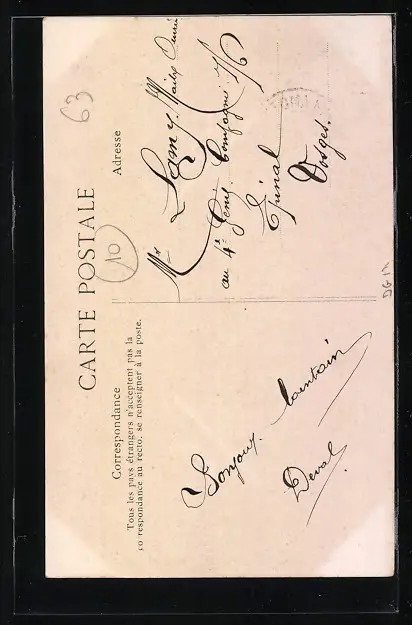 CARTE POSTALE
Correspondance
Tous les pays étrangers n'acceptent pas la
correspondance au recto, se renseigner à la poste.
Adresse
63
10
Mr Lamy, Maitre Ouvrier
au 4e Génie. Compagnie 7/6
Epinal
Vosges.
Bonjour lointain
Deval
DG 17